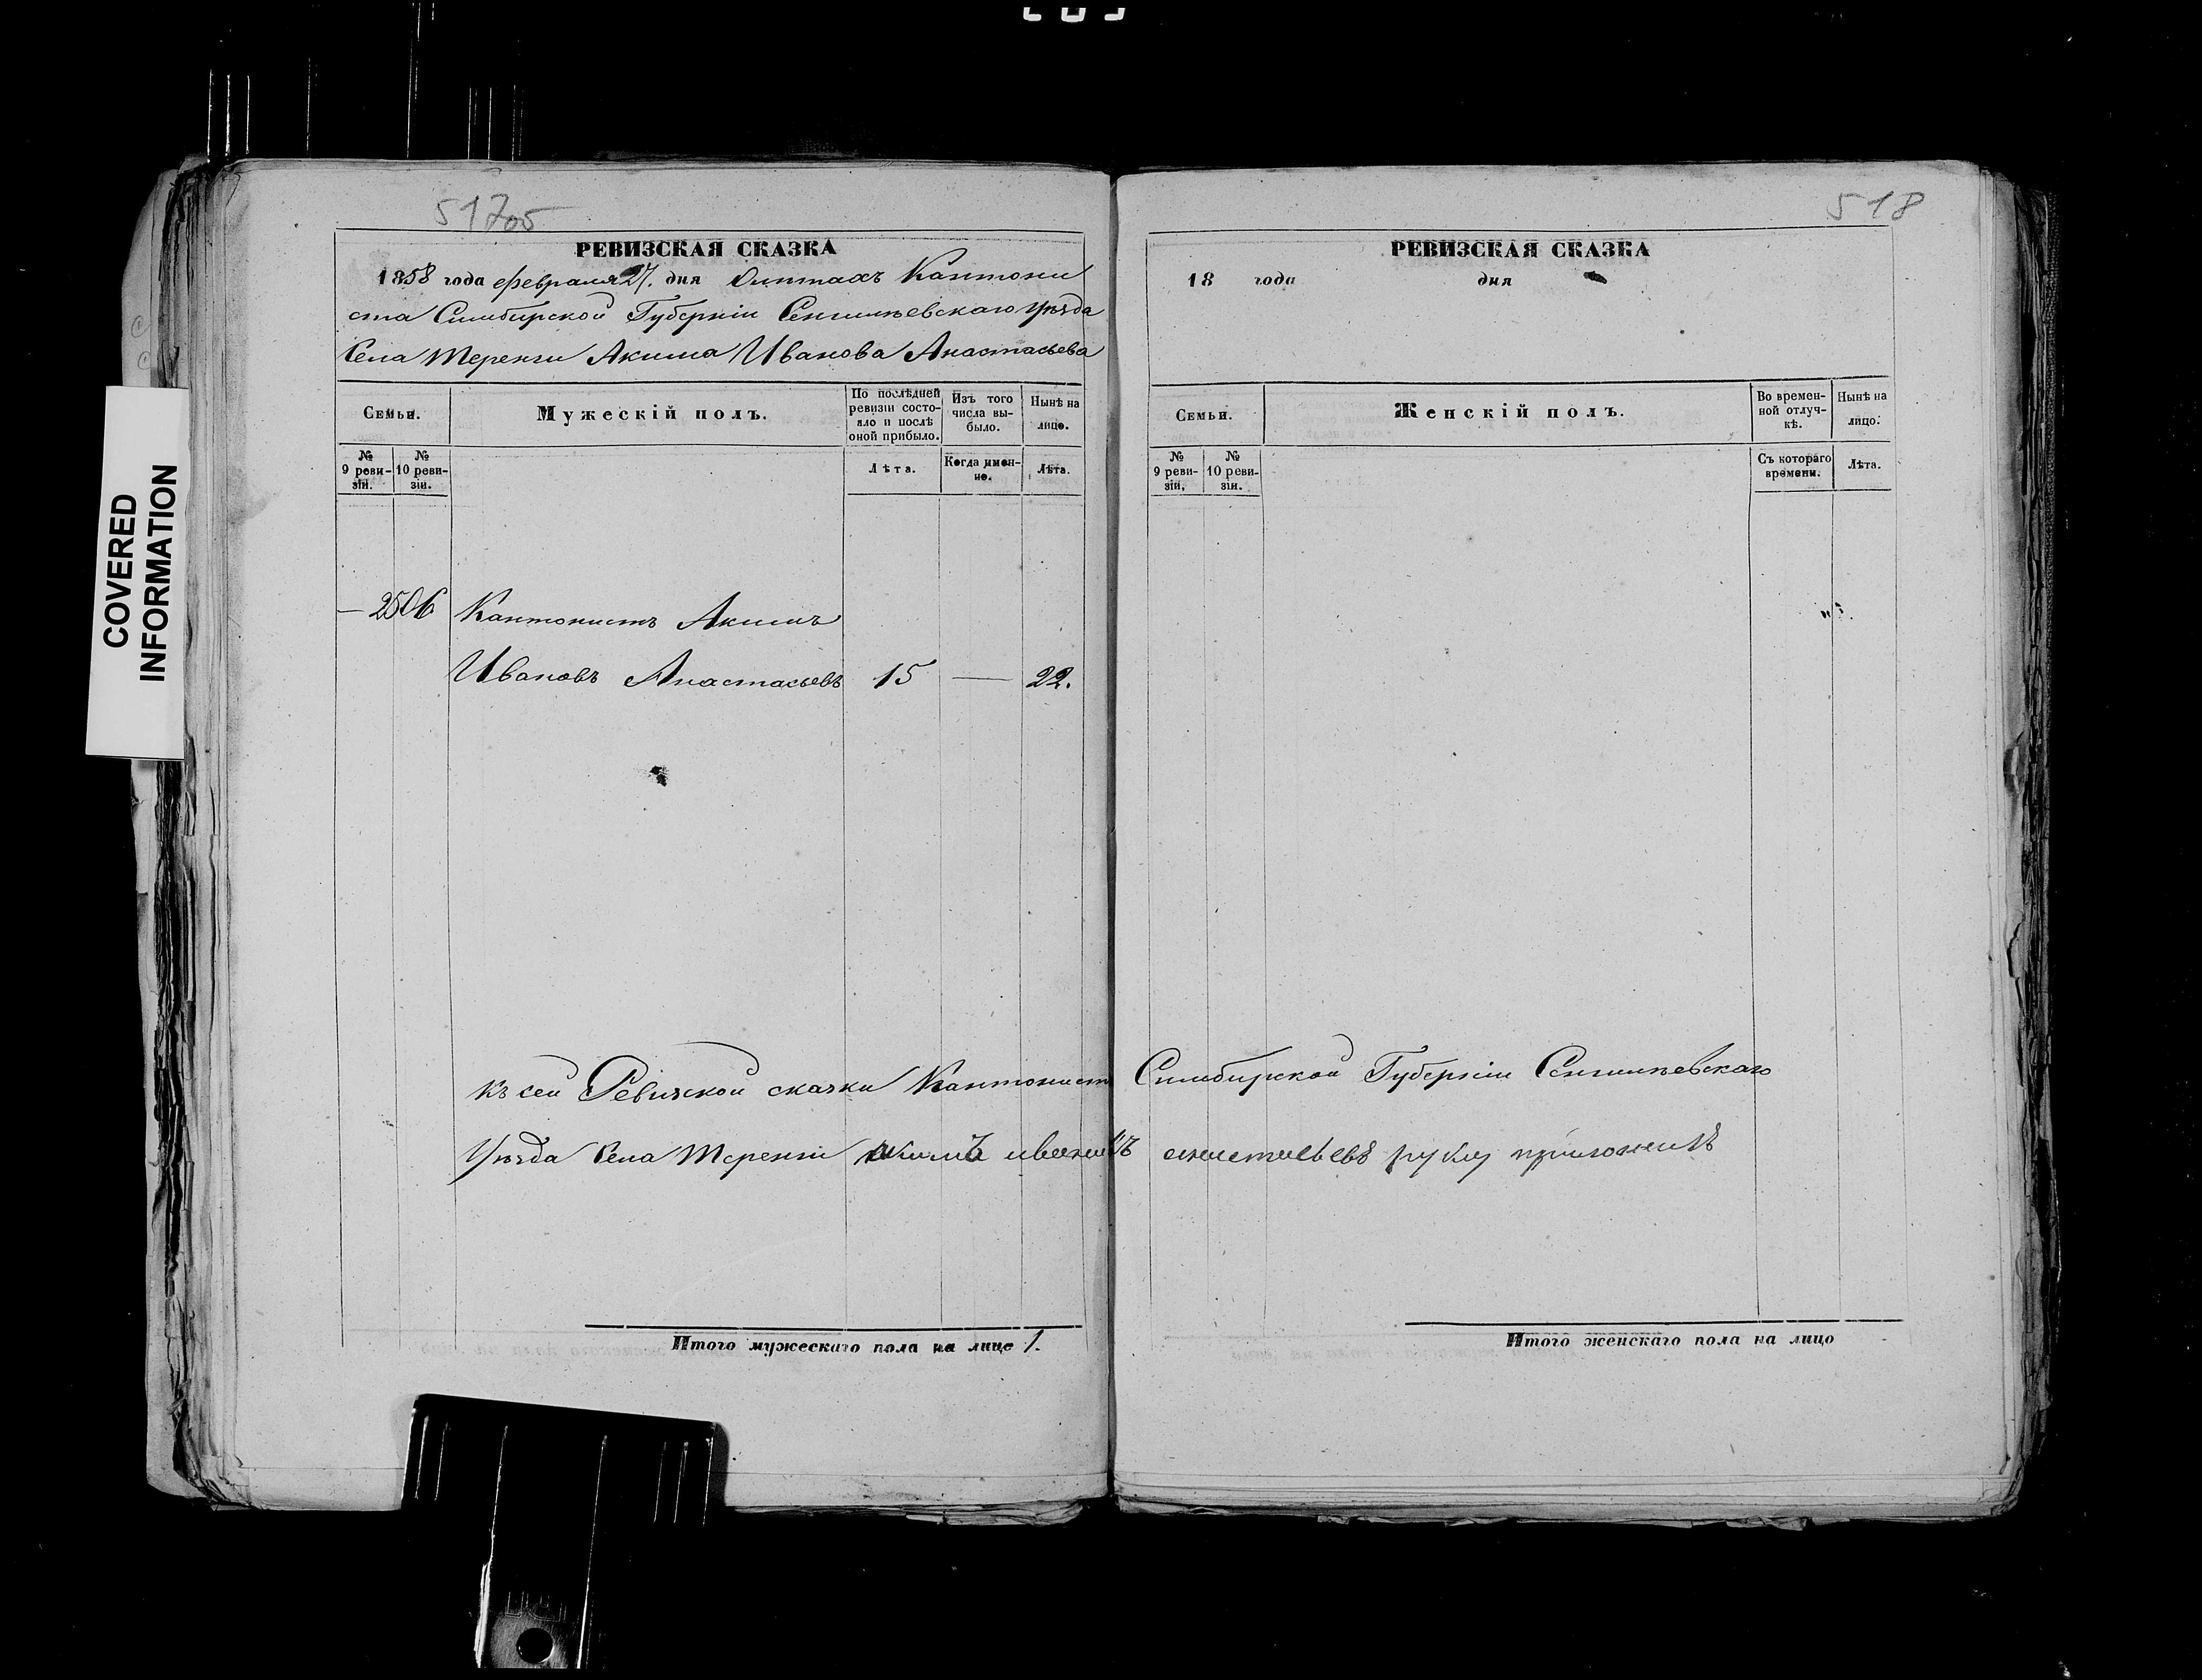 517об
РЕВИЗСКАЯ СКАЗКА
1858 года февраля 27. дня Кантони
ста Симбирской Губерніи Сенгилѣевскаго уѣзда
Села Теренги Акима Иванова Анастасьева
Семьи.
Мужескій полъ.
По послѣдней ревизіи состо-
яло и послѣ оной прибыло.
Изъ того числа вы-
было.
Нынѣ на лицо.
№ 9 реви-
зіи.
№ 10 реви-
зіи.
Лѣта.
Когда имен-
но.
Лѣта.
— 2506 Кантонистъ Акимъ
Ивановъ Анастасьевъ 15 — 22.
Итого мужескаго пола на лице 1.
518
РЕВИЗСКАЯ СКАЗКА
18 года дня
Семьи.
Женскій полъ.
Во времен-
ной отлуч-
кѣ.
Нынѣ на лицо.
№ 9 реви-
зіи,
№ 10 реви-
зіи.
Съ котораго времени.
Лѣта.
Къ сей Ревизской сказки Кантонистъ Симбирской Губерніи Сенгилѣевскаго
Уѣзда Села Теренги акимъ ивановъ анастасьевъ руку приложилъ
Итого женскаго пола на лицо
COVERED
INFORMATION